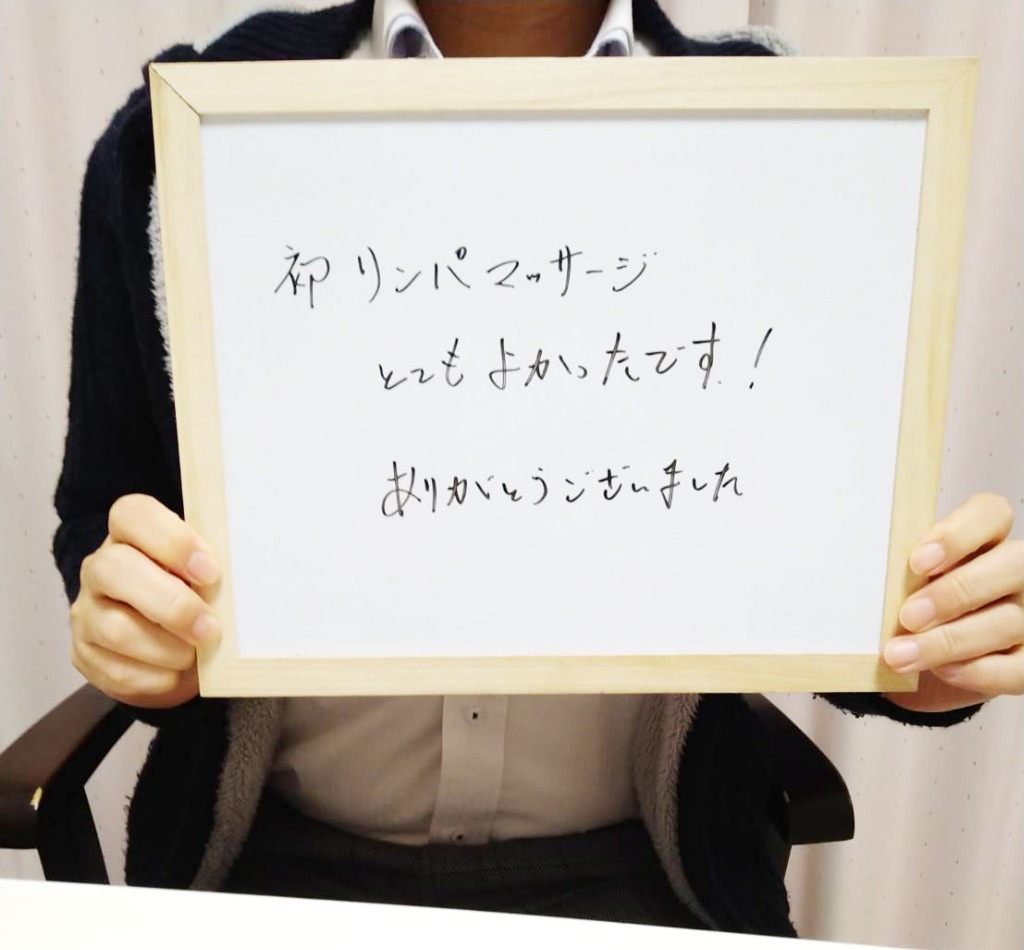 初リンパマッサージ
とてもよかったです!
ありがとうございました